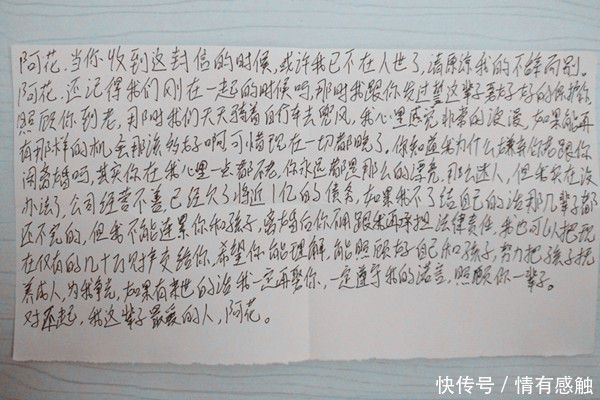 阿花.当你收到这封信的时候,或许我已不在人世了,请原谅我的不辞而别.
阿花.还记得我们刚在一起的时候吗,那时我跟你发过誓这辈子要好好的保护你,
照顾你到老,那时我们天天骑着自行车去兜风,我心里感觉非常的浪漫,如果能再
有那样的机会那该多好啊可惜现在一切都晚了。你知道我为什么嫌弃你老跟你
闹离婚吗,其实你在我心里一点都不老,你永远都是那么的漂亮,那么迷人,但我实在没
办法了,公司经营不善已经欠了将近1亿的债务,如果我不了结自己的治那几辈子都
还不完的,但我不能连累你和孩子,离婚后你不用跟我再承担法律责任,我也可以把现
在仅有的几十万财产交给你,希望你能理解,能照顾好自己和孩子,努力把孩子抚
养成人,为我争光,如果有来世的治我一定再娶你,一定遵守我的诺言,照顾你一辈子。
对还起,我这辈子最爱的人,阿花。
快传号/情有感触